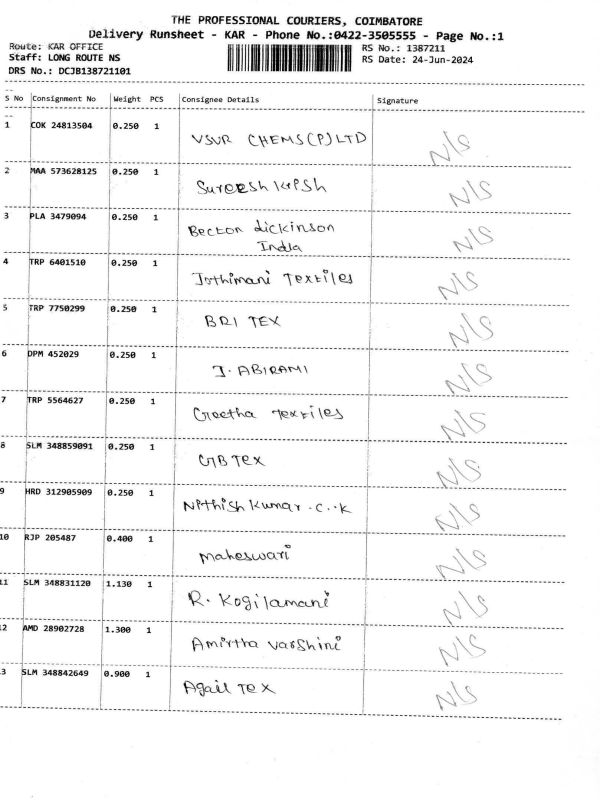 THE PROFESSIONAL COURIERS, COIMBATORE
Delivery Runsheet - KAR - Phone No.:0422-3505555 - Page No.:1
Route: KAR OFFICE RS No.: 1387211
Staff: LONG ROUTE NS RS Date: 24-Jun-2024
DRS No.: DCJB138721101
S No Consignment No Weight PCS Consignee Details Signature
1 COK 24813504 0.250 1 VSVR CHEMS(P)LTD N/S
2 MAA 573628125 0.250 1 Sureesh N/S
3 PLA 3479094 0.250 1 Becton dickinson N/S
India
4 TRP 6401510 0.250 1 Jothimani Textiles N/S
5 TRP 7750299 0.250 1 BRI TEX N/S
6 DPM 452029 0.250 1 J. ABIRAMI N/S
7 TRP 5564627 0.250 1 Geetha Textiles N/S
8 SLM 348859091 0.250 1 GB TEX N/S
9 HRD 312905909 0.250 1 Nithish Kumar.C..K N/S
10 RJP 205487 0.400 1 Maheswari N/S
11 SLM 348831120 1.130 1 R. Kogilamani N/S
12 AMD 28902728 1.300 1 Amirtha varshini N/S
3 SLM 348842649 0.900 1 Agail TEX N/S